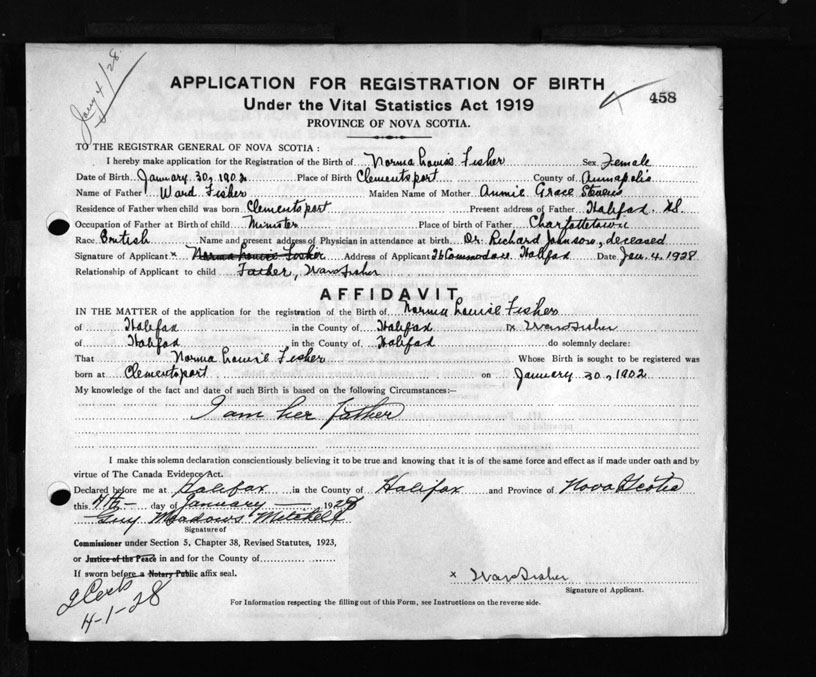 Jany 4/28.
APPLICATION FOR REGISTRATION OF BIRTH
Under the Vital Statistics Act 1919
458
PROVINCE OF NOVA SCOTIA.
TO THE REGISTRAR GENERAL OF NOVA SCOTIA :
I hereby make application for the Registration of the Birth of Norma Louise Fisher Sex Female
Date of Birth January 30, 1902 Place of Birth Clementsport County of Annapolis
Name of Father Ward Fisher Maiden Name of Mother Annie Grace
Residence of Father when child was born Clementsport Present address of Father Halifax NS.
Occupation of Father at Birth of child Minister Place of birth of Father Charlottetown
Race British Name and present address of Physician in attendance at birth Dr. Richard Johnson, deceased
Signature of Applicant x Norma Louise Fisher Address of Applicant 26 Commodore Halifax Date Jan. 4. 1928
Relationship of Applicant to child Father, Ward Fisher
AFFIDAVIT
IN THE MATTER of the application for the registration of the Birth of Norma Louise Fisher
of Halifax in the County of Halifax I x Ward Fisher
of Halifax in the County of Halifax do solemnly declare:
That Norma Louise Fisher Whose Birth is sought to be registered was
born at Clementsport on January 30, 1902
My knowledge of the fact and date of such Birth is based on the following Circumstances:—
I am her father
I make this solemn declaration conscientiously believing it to be true and knowing that it is of the same force and effect as if made under oath and by
virtue of The Canada Evidence Act.
Declared before me at Halifax in the County of Halifax and Province of Nova Scotia
this 4th day of January 1928
Guy Meadows Mitchell
Signature of
Commissioner under Section 5, Chapter 38, Revised Statutes, 1923,
or Justice of the Peace in and for the County of
If sworn before a Notary Public affix seal.
x Ward Fisher
Signature of Applicant.
4-1-28
For Information respecting the filling out of this Form, see Instructions on the reverse side.